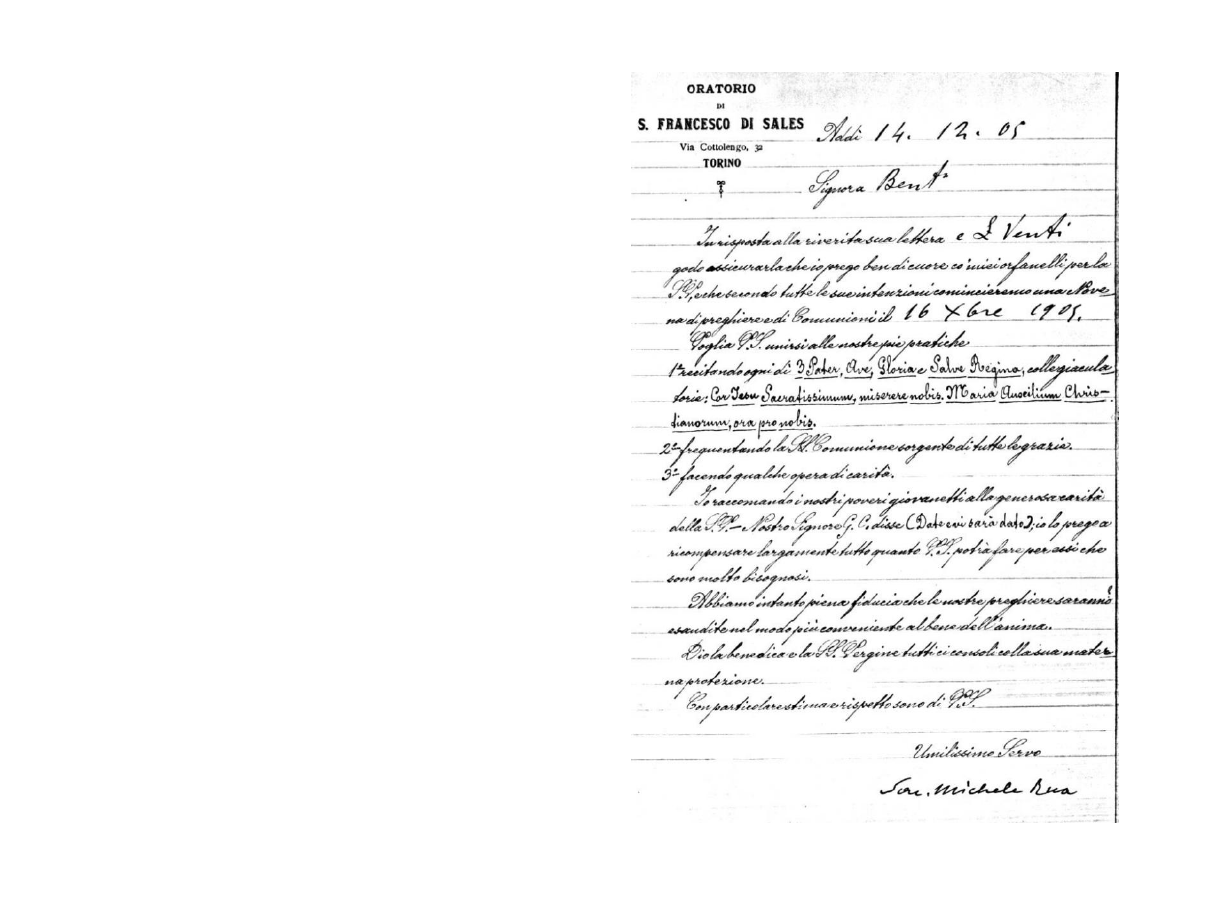 ORATORIO
DI
S. FRANCESCO DI SALES
Via Cottolengo, 32
TORINO
Addì 14. 12. 05
Signora Bent.ª
In risposta alla riverita sua lettera e £ Venti
godo assicurarla che io prego ben di cuore co' miei orfanelli per la
V.S., e che secondo tutte le sue intenzioni comincieremo una Nove-
na di preghiere e di Comunioni il 16 Xbre 1905.
Voglia V.S. unirsi alle nostre pie pratiche
1º recitando ogni dì 3 Pater, Ave, Gloria e Salve Regina, colle giacula
torie: Cor Jesu Sacratissimum, miserere nobis. Maria Auxilium Chris-
tianorum, ora pro nobis.
2º frequentando la SS. Comunione sorgente di tutte le grazie.
3º facendo qualche opera di carità.
Io raccomando i nostri poveri giovanetti alla generosa carità
della V.S. - Nostro Signore G. C. disse (Date e vi sarà dato); io lo prego a
ricompensare largamente tutto quanto V.S. potrà fare per essi che
sono molto bisognosi.
Abbiamo intanto piena fiducia che le nostre preghiere saranno
esaudite nel modo più conveniente al bene dell'anima.
Dio la benedica e la SS. Vergine tutti ci consoli colla sua mater
na protezione.
Con particolare stima e rispetto sono di V.S.
Umilissimo Servo
Sac. Michele Rua